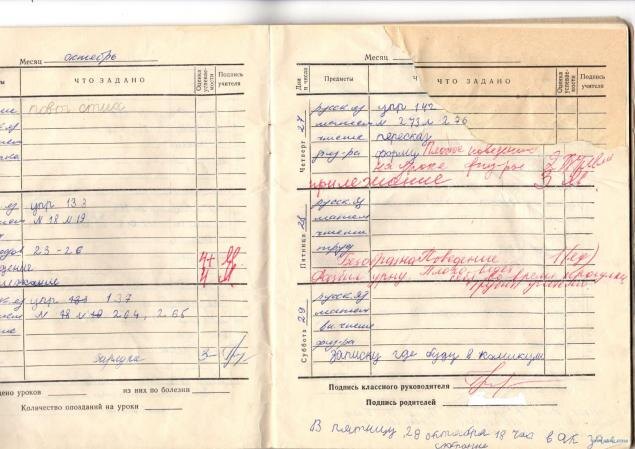 Месяц октябрь
ЧТО ЗАДАНО
Оценка успевае- мости
Подпись учителя
повт стих
упр 133
N 18 N 19
23-26 4+
4
упр 137
N 264, 265
зарядка
из них по болезни
Количество опозданий на уроки
Месяц
Дни и числа
Предметы
ЧТО ЗАДАНО
Оценка успевае- мости
Подпись учителя
Четверг 27
русск яз упр 142
матем N 273 N 276
чтение пересказ
физ-ра форму Плохое поведение
на уроке физ-ры 2
прилежание 3
Пятница 28
русск яз
матем
чтение
труд
Безобразно Поведение 1(ед)
урну. Плохо ведет во время прогулки
Суббота 29
русск яз
матем
вн чтение
физ-ра
Записку где буду в каникулы
Подпись классного руководителя
Подпись родителей
В пятницу 28 октября 18 час в
собрание